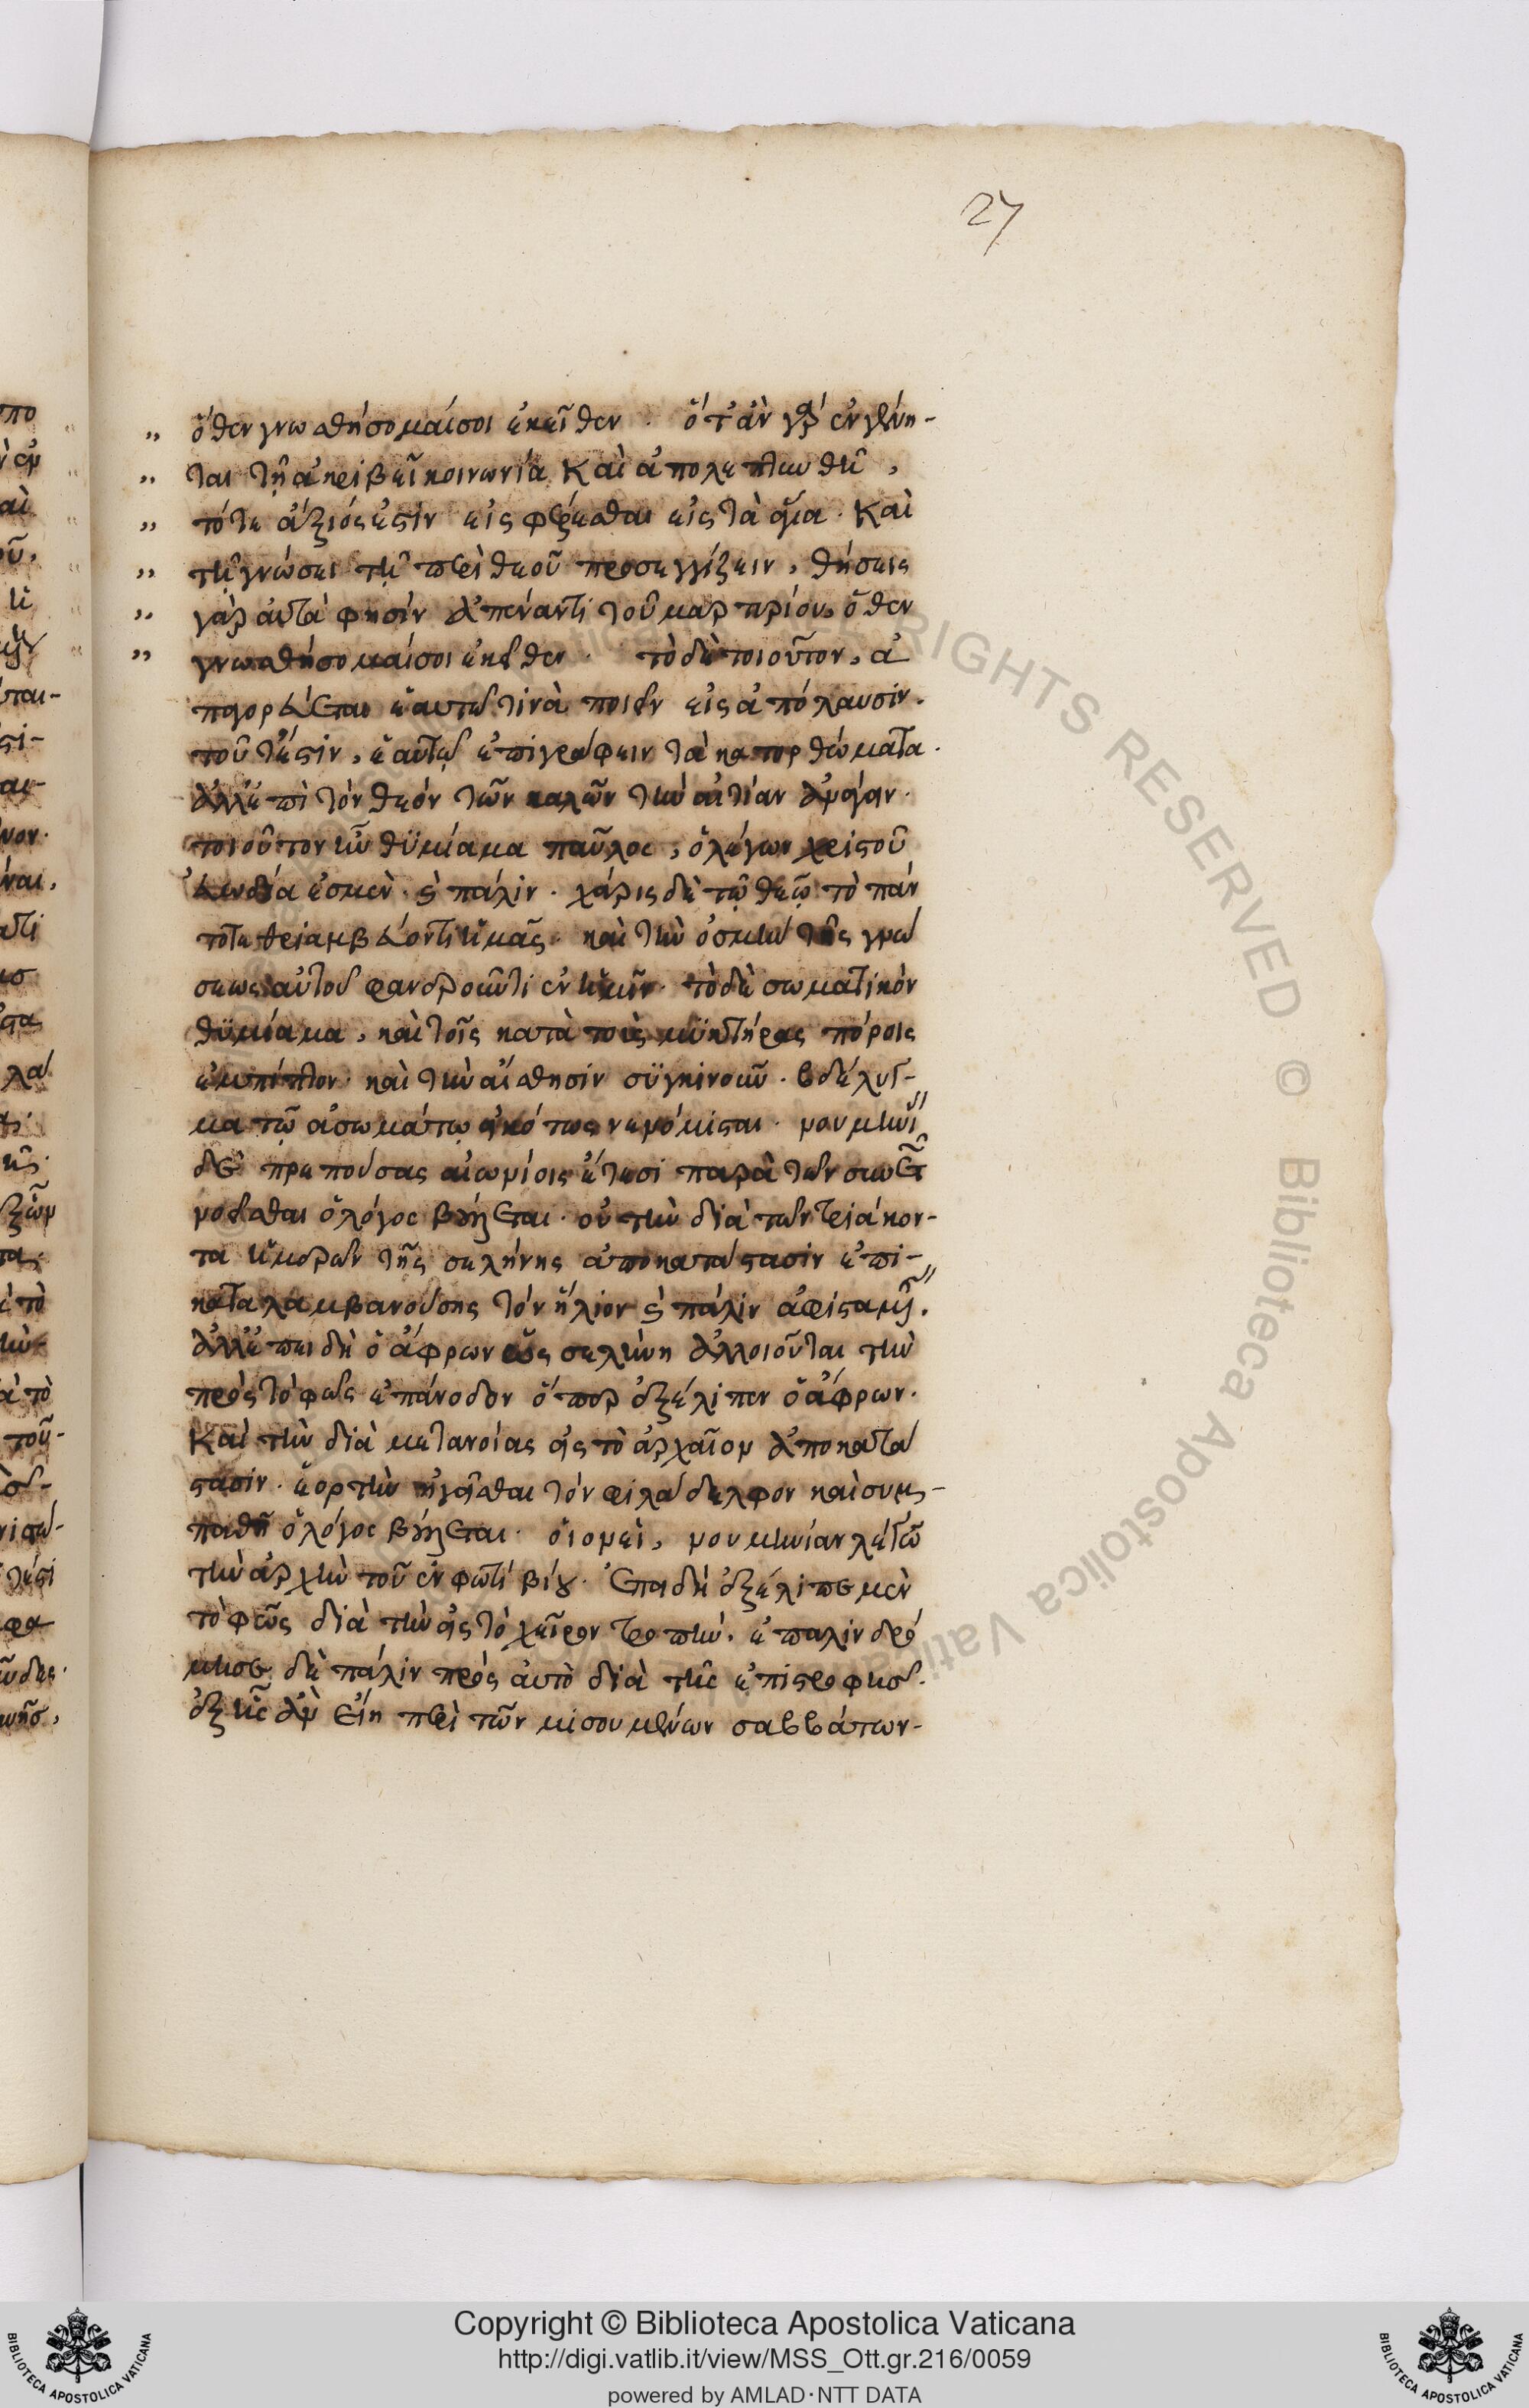 27
ὅθεν γνωσθήσομαί σοι ἐκεῖθεν · ὅτ' ἂν γὰρ ἐν γένη-
ται τῇ ἀκριβεῖ κοινωνία καὶ ἀπολεπτυνθῆ,
τότε ἄξιός ἐστιν εἰσφέρεσθαι εἰς τὰ ἅγια · Καὶ
τῇ γνώσει τῇ περὶ θεοῦ προσεγγίζειν, θήσεις
γὰρ αὐτὰ φησὶν ἀπέναντι τοῦ μαρτυρίου, ὅθεν
γνωσθήσομαί σοι ἐκεῖθεν · τὸ δὲ τοιοῦτον, ἀ
παγορεύεται ἑαυτῶ τινὰ ποιεῖν εἰς ἀπόλαυσιν ·
τουτέστιν, ἑαυτῷ ἐπιγράφειν τὰ κατορθώματα ·
ἀλλ' ἐπὶ τὸν θεόν τῶν καλῶν τὴν αἰτίαν ἀνάγειν ·
τοιοῦτον ἦν θϋμίαμα παῦλος, ὁ λέγων χριστοῦ
εὐωδία ἐσμὲν · καὶ πάλιν · χάρις δὲ τῷ θεῷ τὸ πάν
τοτε θριαμβεύοντι ἡμᾶς · καὶ τὴν ὀσμὴν τῆς γνώ
σεως αὐτοῦ φανεροῦντι ἐν ἡμῖν · τὸ δὲ σωματικὸν
θϋμίαμα, καὶ τοῖς κατὰ τοὺς μϋκτήρας πόροις
ἐμπίπτον · καὶ τὴν αἴσθησιν σϋγκινοῦν · βδέλυγ-
μα τῷ ἀσωμάτῳ εἰκότως νενόμισται · νουμηνί
δὲ πρεπούσας αἰωνίοις ἔτεσι παρὰ τῶν
ὁ λόγος βούλεται · οὐ τὴν διὰ τῶν τριάκον-
τα ἡμερῶν τῆς σελήνης ἀποκατάστασιν ἐπι-
καταλαμβανούσης τὸν ἥλιον καὶ πάλιν ἀφισταμένης ·
ἀλλ' ἐπειδὴ ὁ ἄφρων ὡς σελήνη ἀλλοιοῦται τὴν
πρὸς τὸ φῶς ἐπάνοδον ὅπερ ἐξέλιπεν ὁ ἄφρων ·
Καὶ τὴν διὰ μετανοίας εἰς τὸ ἀρχαῖον ἀποκατά
στασιν · ἑορτὴν ἡγεῖσθαι τὸν φιλάδελφον καὶ συμ-
παθῆ ὁ λόγος βούλεται · οἱονεὶ, νουμηνίαν λέγων
τὴν ἀρχὴν τοῦ ἐν φωτὶ βίου · Ἐπειδὴ ἐξέλιπε μὲν
τὸ φῶς διὰ τὴν εἰς τὸ χεῖρον τροπὴν · ἐπαλινδρό
μησε δὲ πάλιν πρὸς αὐτὸ διὰ τῆς ἐπιστροφῆς ·
ἑξῆς ἂν εἴη περὶ τῶν μισουμένων σαββάτων ·
Copyright © Biblioteca Apostolica Vaticana
http://digi.vatlib.it/view/MSS_Ott.gr.216/0059
powered by AMLAD·NTT DATA
BIBLIOTECA APOSTOLICA VATICANA
BIBLIOTECA APOSTOLICA VATICANA